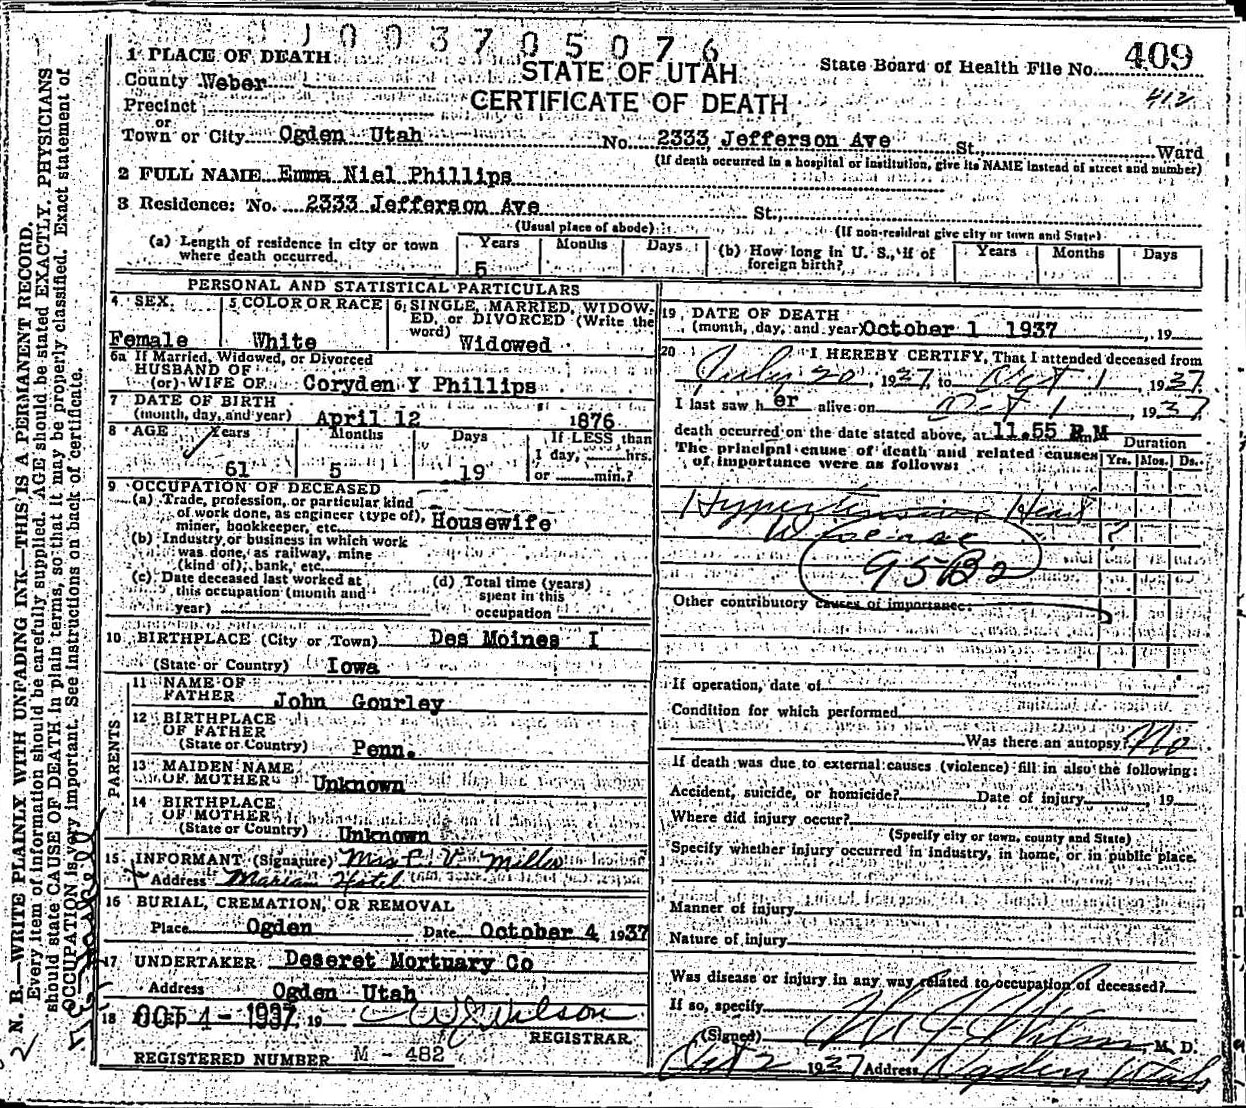 1003705076
409
412
1 PLACE OF DEATH
STATE OF UTAH
State Board of Health File No.
County Weber
CERTIFICATE OF DEATH
Precinct
or
Town or City Ogden Utah No. 2333 Jefferson Ave St., Ward
(If death occurred in a hospital or institution, give its NAME instead of street and number)
2 FULL NAME Emma Niel Phillips
3 Residence: No. 2333 Jefferson Ave St.,
(Usual place of abode) (If non-resident give city or town and State)
(a) Length of residence in city or town where death occurred. Years 5 Months Days
(b) How long in U. S., if of foreign birth? Years Months Days
PERSONAL AND STATISTICAL PARTICULARS
4 SEX. Female
5 COLOR OR RACE White
6 SINGLE, MARRIED, WIDOWED, or DIVORCED (Write the word) Widowed
6a If Married, Widowed, or Divorced
HUSBAND OF
(or) WIFE OF Coryden Y Phillips
7 DATE OF BIRTH
(month, day, and year) April 12 1876
8 AGE Years Months Days If LESS than
1 day, hrs.
61 5 19 or min.?
9 OCCUPATION OF DECEASED
(a) Trade, profession, or particular kind
of work done, as engineer (type of),
miner, bookkeeper, etc. Housewife
(b) Industry or business in which work
was done, as railway, mine
(kind of), bank, etc.
(c) Date deceased last worked at
this occupation (month and
year)
(d) Total time (years)
spent in this
occupation
10 BIRTHPLACE (City or Town) Des Moines I
(State or Country) Iowa
PARENTS
11 NAME OF
FATHER John Gourley
12 BIRTHPLACE
OF FATHER
(State or Country) Penn.
13 MAIDEN NAME
OF MOTHER Unknown
14 BIRTHPLACE
OF MOTHER
(State or Country) Unknown
15 INFORMANT (Signature) Mrs P. V. Miller
Address Marian Hotel
16 BURIAL, CREMATION, OR REMOVAL
Place Ogden Date October 4 1937
17 UNDERTAKER Deseret Mortuary Co
Address Ogden Utah
18 OCT 4 - 1937 19 Wilson
REGISTRAR
REGISTERED NUMBER M - 482
19 DATE OF DEATH
(month, day, and year) October 1 1937 , 19
20 I HEREBY CERTIFY, That I attended deceased from
July 20, 1937, to Oct 1, 1937
I last saw her alive on Oct 1, 1937
death occurred on the date stated above, at 11.55 P.M
The principal cause of death and related causes
of importance were as follows:
Duration
Yrs. Mos. Ds.
Hypertension Heart
Disease ?
95B2
Other contributory causes of importance:
If operation, date of
Condition for which performed
Was there an autopsy? No
If death was due to external causes (violence) fill in also the following:
Accident, suicide, or homicide? Date of injury , 19
Where did injury occur?
(Specify city or town, county and State)
Specify whether injury occurred in industry, in home, or in public place.
Manner of injury
Nature of injury
Was disease or injury in any way related to occupation of deceased?
If so, specify
(Signed) M. D.
Oct 2 1937 Address Ogden Utah
N. B.—WRITE PLAINLY WITH UNFADING INK—THIS IS A PERMANENT RECORD.
Every item of information should be carefully supplied. AGE should be stated EXACTLY. PHYSICIANS
should state CAUSE OF DEATH in plain terms, so that it may be properly classified. Exact statement of
OCCUPATION is very important. See instructions on back of certificate.